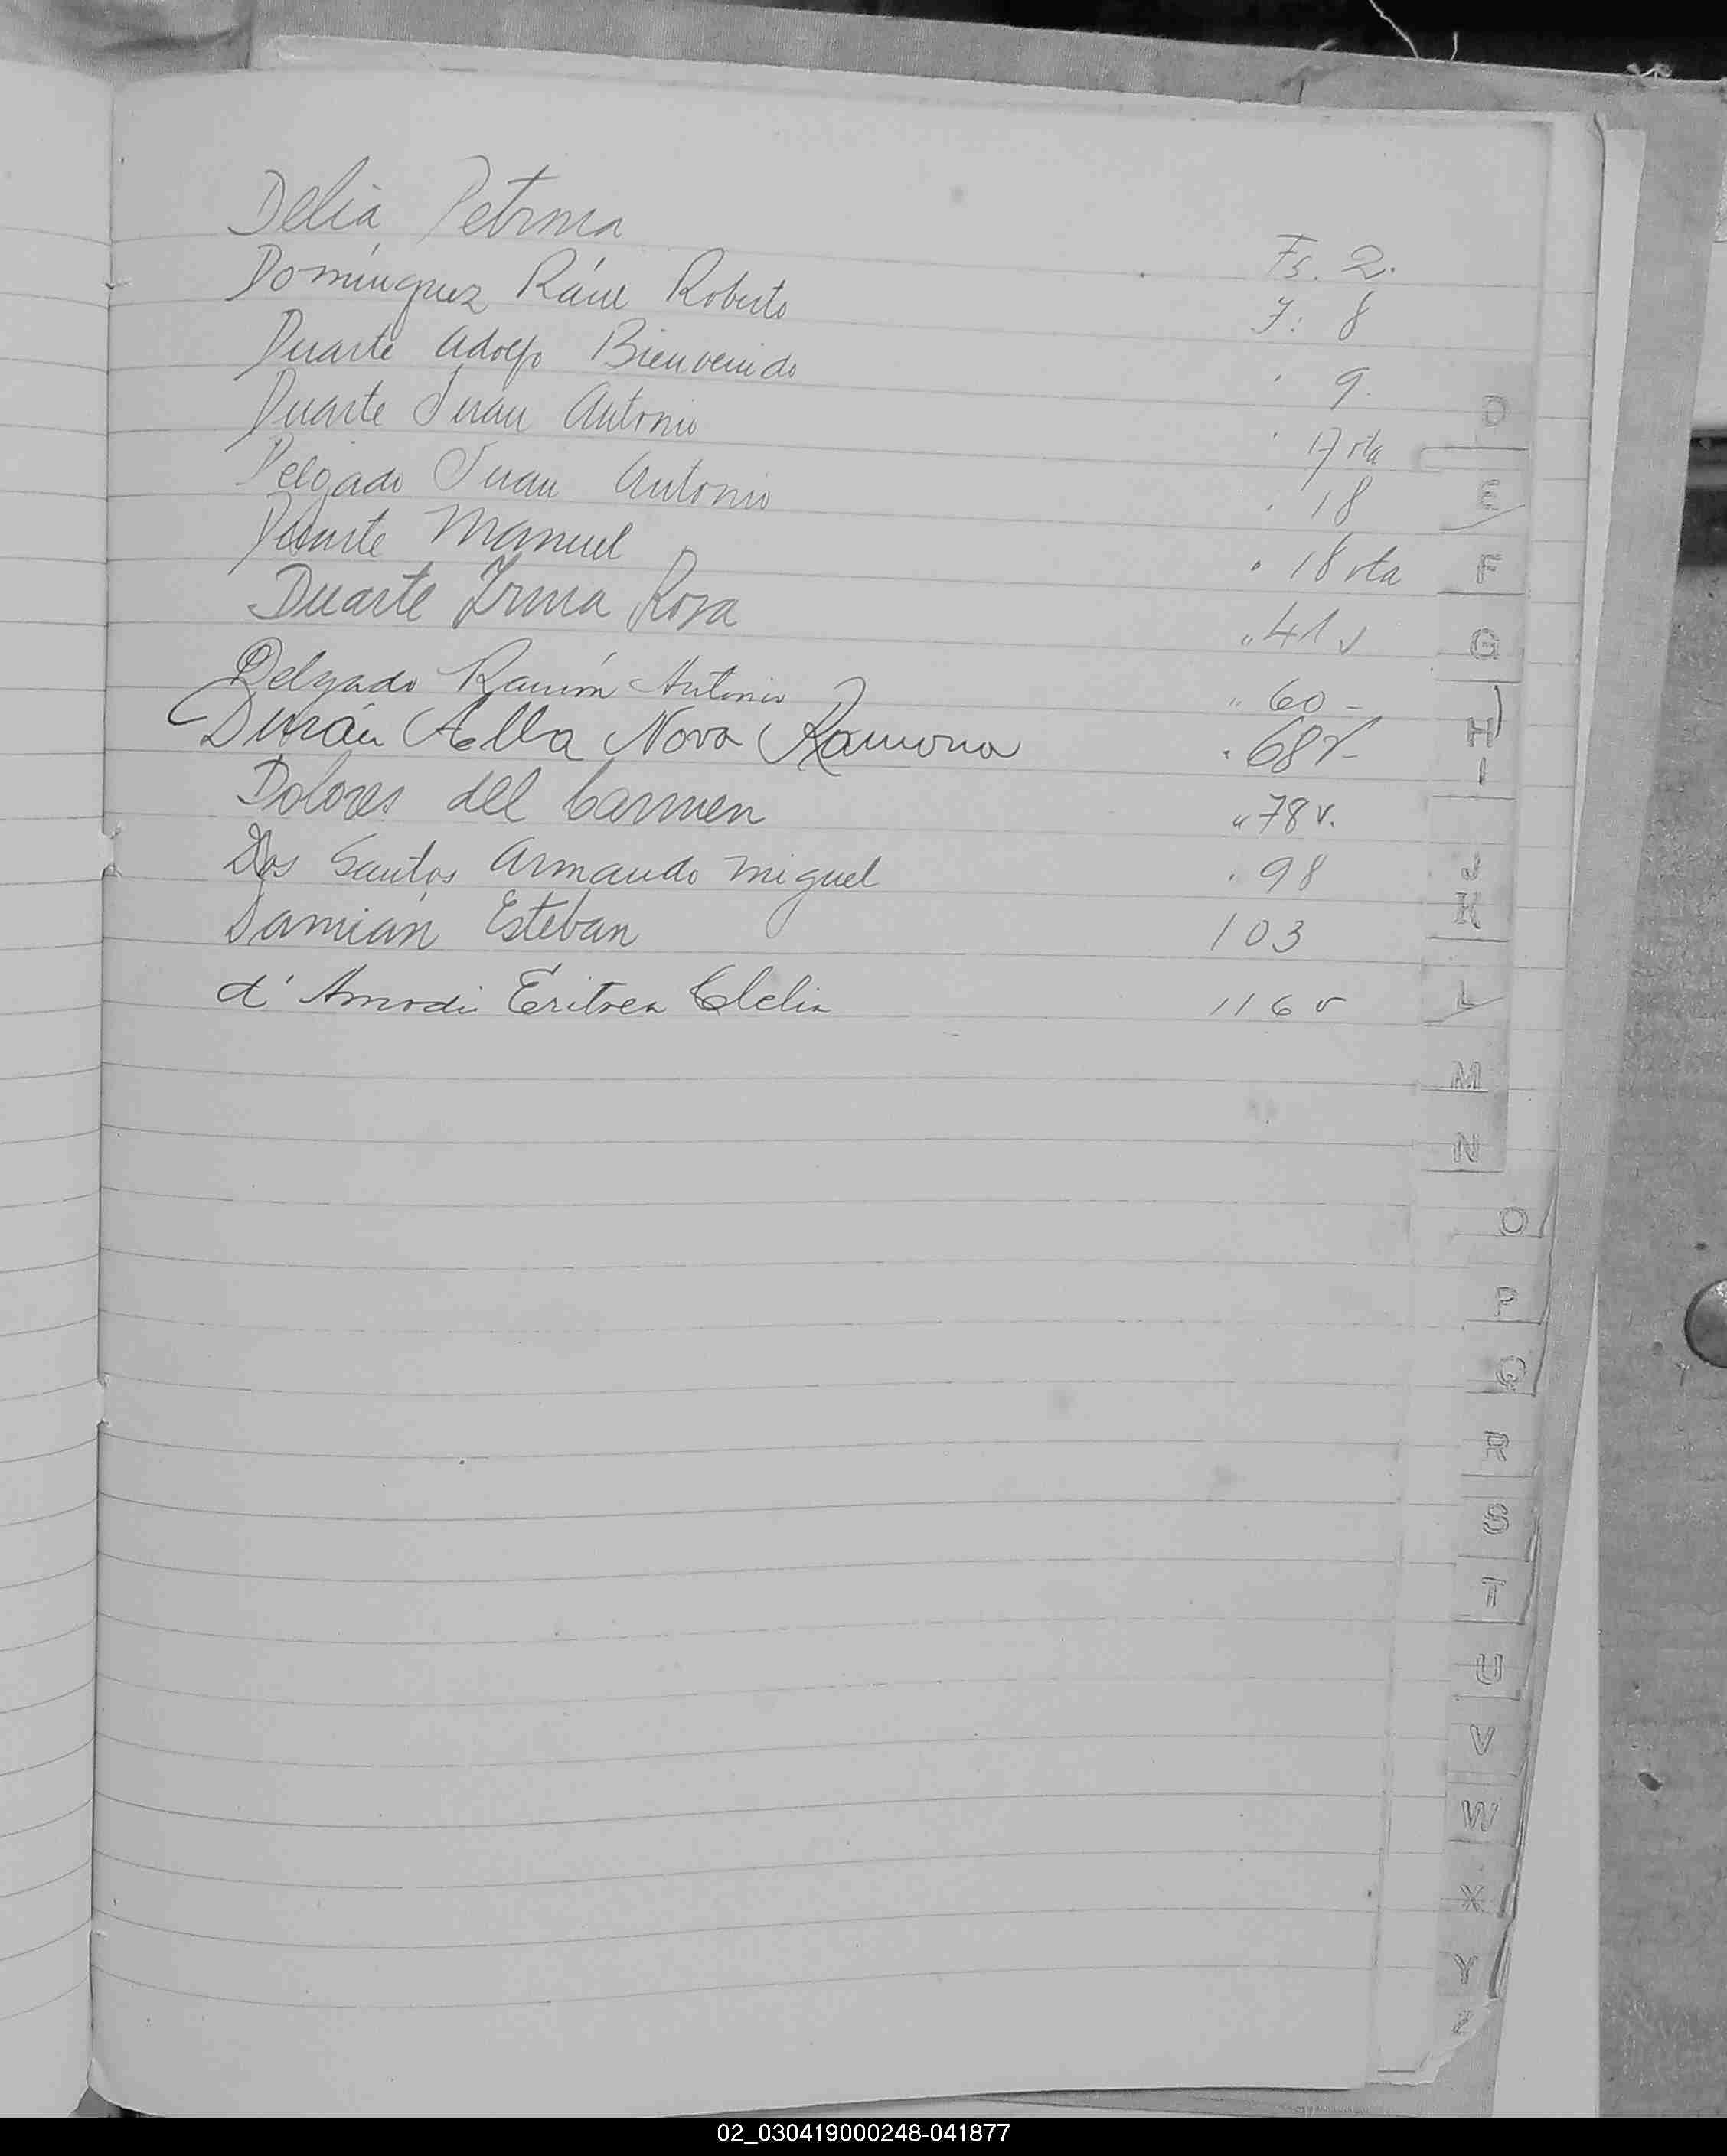 Delia Petrona Fs. 2.
Domínguez Raúl Roberto F: 8
Duarte Adolfo Bienvenido " 9.
Duarte Juan Antonio " 17 vta
Delgado Juan Antonio " 18
Duarte Manuel " 18 vta
Duarte Irma Rosa " 41 v
Delgado Ramón Antonio " 60 -
Durán Alba Nova Ramona " 68 v-
Dolores del Carmen " 78 v.
Dos Santos Armando Miguel " 98
Damián Esteban 103
d' Amodi Eritrea Clelia 116 v
D
E
F
G
H
I
J
K
L
M
N
O
P
Q
R
S
T
U
V
W
X
Y
Z
02_030419000248-041877